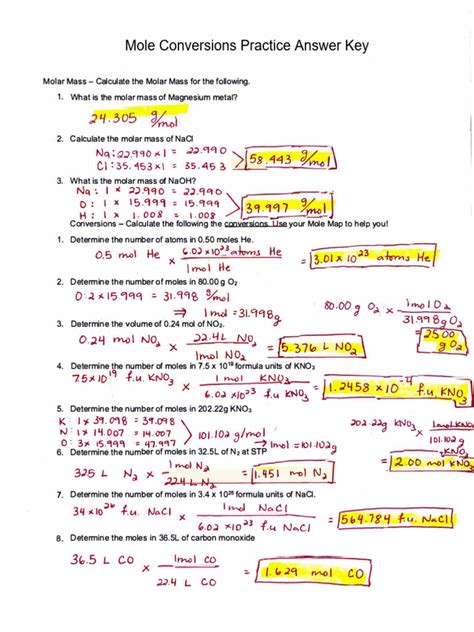 Mole Conversions Practice Answer Key
Molar Mass – Calculate the Molar Mass for the following.
1. What is the molar mass of Magnesium metal?
24.305 g/mol
2. Calculate the molar mass of NaCl
Na: 22.990 x 1 = 22.990
Cl: 35.453 x 1 = 35.453
58.443 g/mol
3. What is the molar mass of NaOH?
Na: 1 x 22.990 = 22.990
O: 1 x 15.999 = 15.999
H: 1 x 1.008 = 1.008
39.997 g/mol
Conversions – Calculate the following the conversions. Use your Mole Map to help you!
1. Determine the number of atoms in 0.50 moles He.
0.5 mol He x 6.02 x 10²³ atoms He = 3.01 x 10²³ atoms He
1mol He
2. Determine the number of moles in 80.00 g O₂
O: 2 x 15.999 = 31.998 g/mol
→ 1mol = 31.998g
80.00 g O₂ x 1mol O₂
31.998 g O₂
= 2500 g O₂
3. Determine the volume of 0.24 mol of NO₂.
0.24 mol NO₂ x 22.4L NO₂ = 5.376 L NO₂
1mol NO₂
4. Determine the number of moles in 7.5 x 10¹⁹ formula units of KNO₃
7.5 x 10¹⁹ f.u. KNO₃ x 1 mol KNO₃ = 1.2458 x 10⁻⁴ f.u. KNO₃
6.02 x 10²³ f.u. KNO₃
5. Determine the number of moles in 202.22g KNO₃
K: 1 x 39.098 = 39.098
N: 1 x 14.007 = 14.007
O: 3 x 15.999 = 47.997
101.102 g/mol
→ 1mol = 101.102g
202.22g KNO₃ x 1mol KNO₃
101.102 g KNO₃
= 2.00 mol KNO₃
6. Determine the number of moles in 32.5L of N₂ at STP
325 L N₂ x 1mol N₂ = 1.451 mol N₂
22.4L N₂
7. Determine the number of moles in 3.4 x 10²⁶ formula units of NaCl.
34 x 10²⁶ f.u. NaCl x 1mol NaCl = 564.784 f.u. NaCl
6.02 x 10²³ f.u. NaCl
8. Determine the moles in 36.5L of carbon monoxide
36.5 L CO x 1mol CO = 1.629 mol CO
22.4 L CO